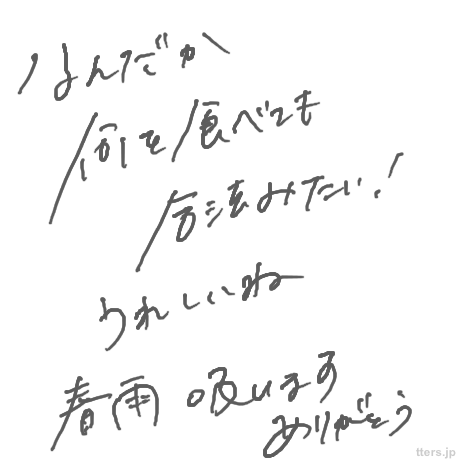 なんだか
何を食べても
合法みたい!
うれしいね
春雨 吸います
ありがとう
tters.jp